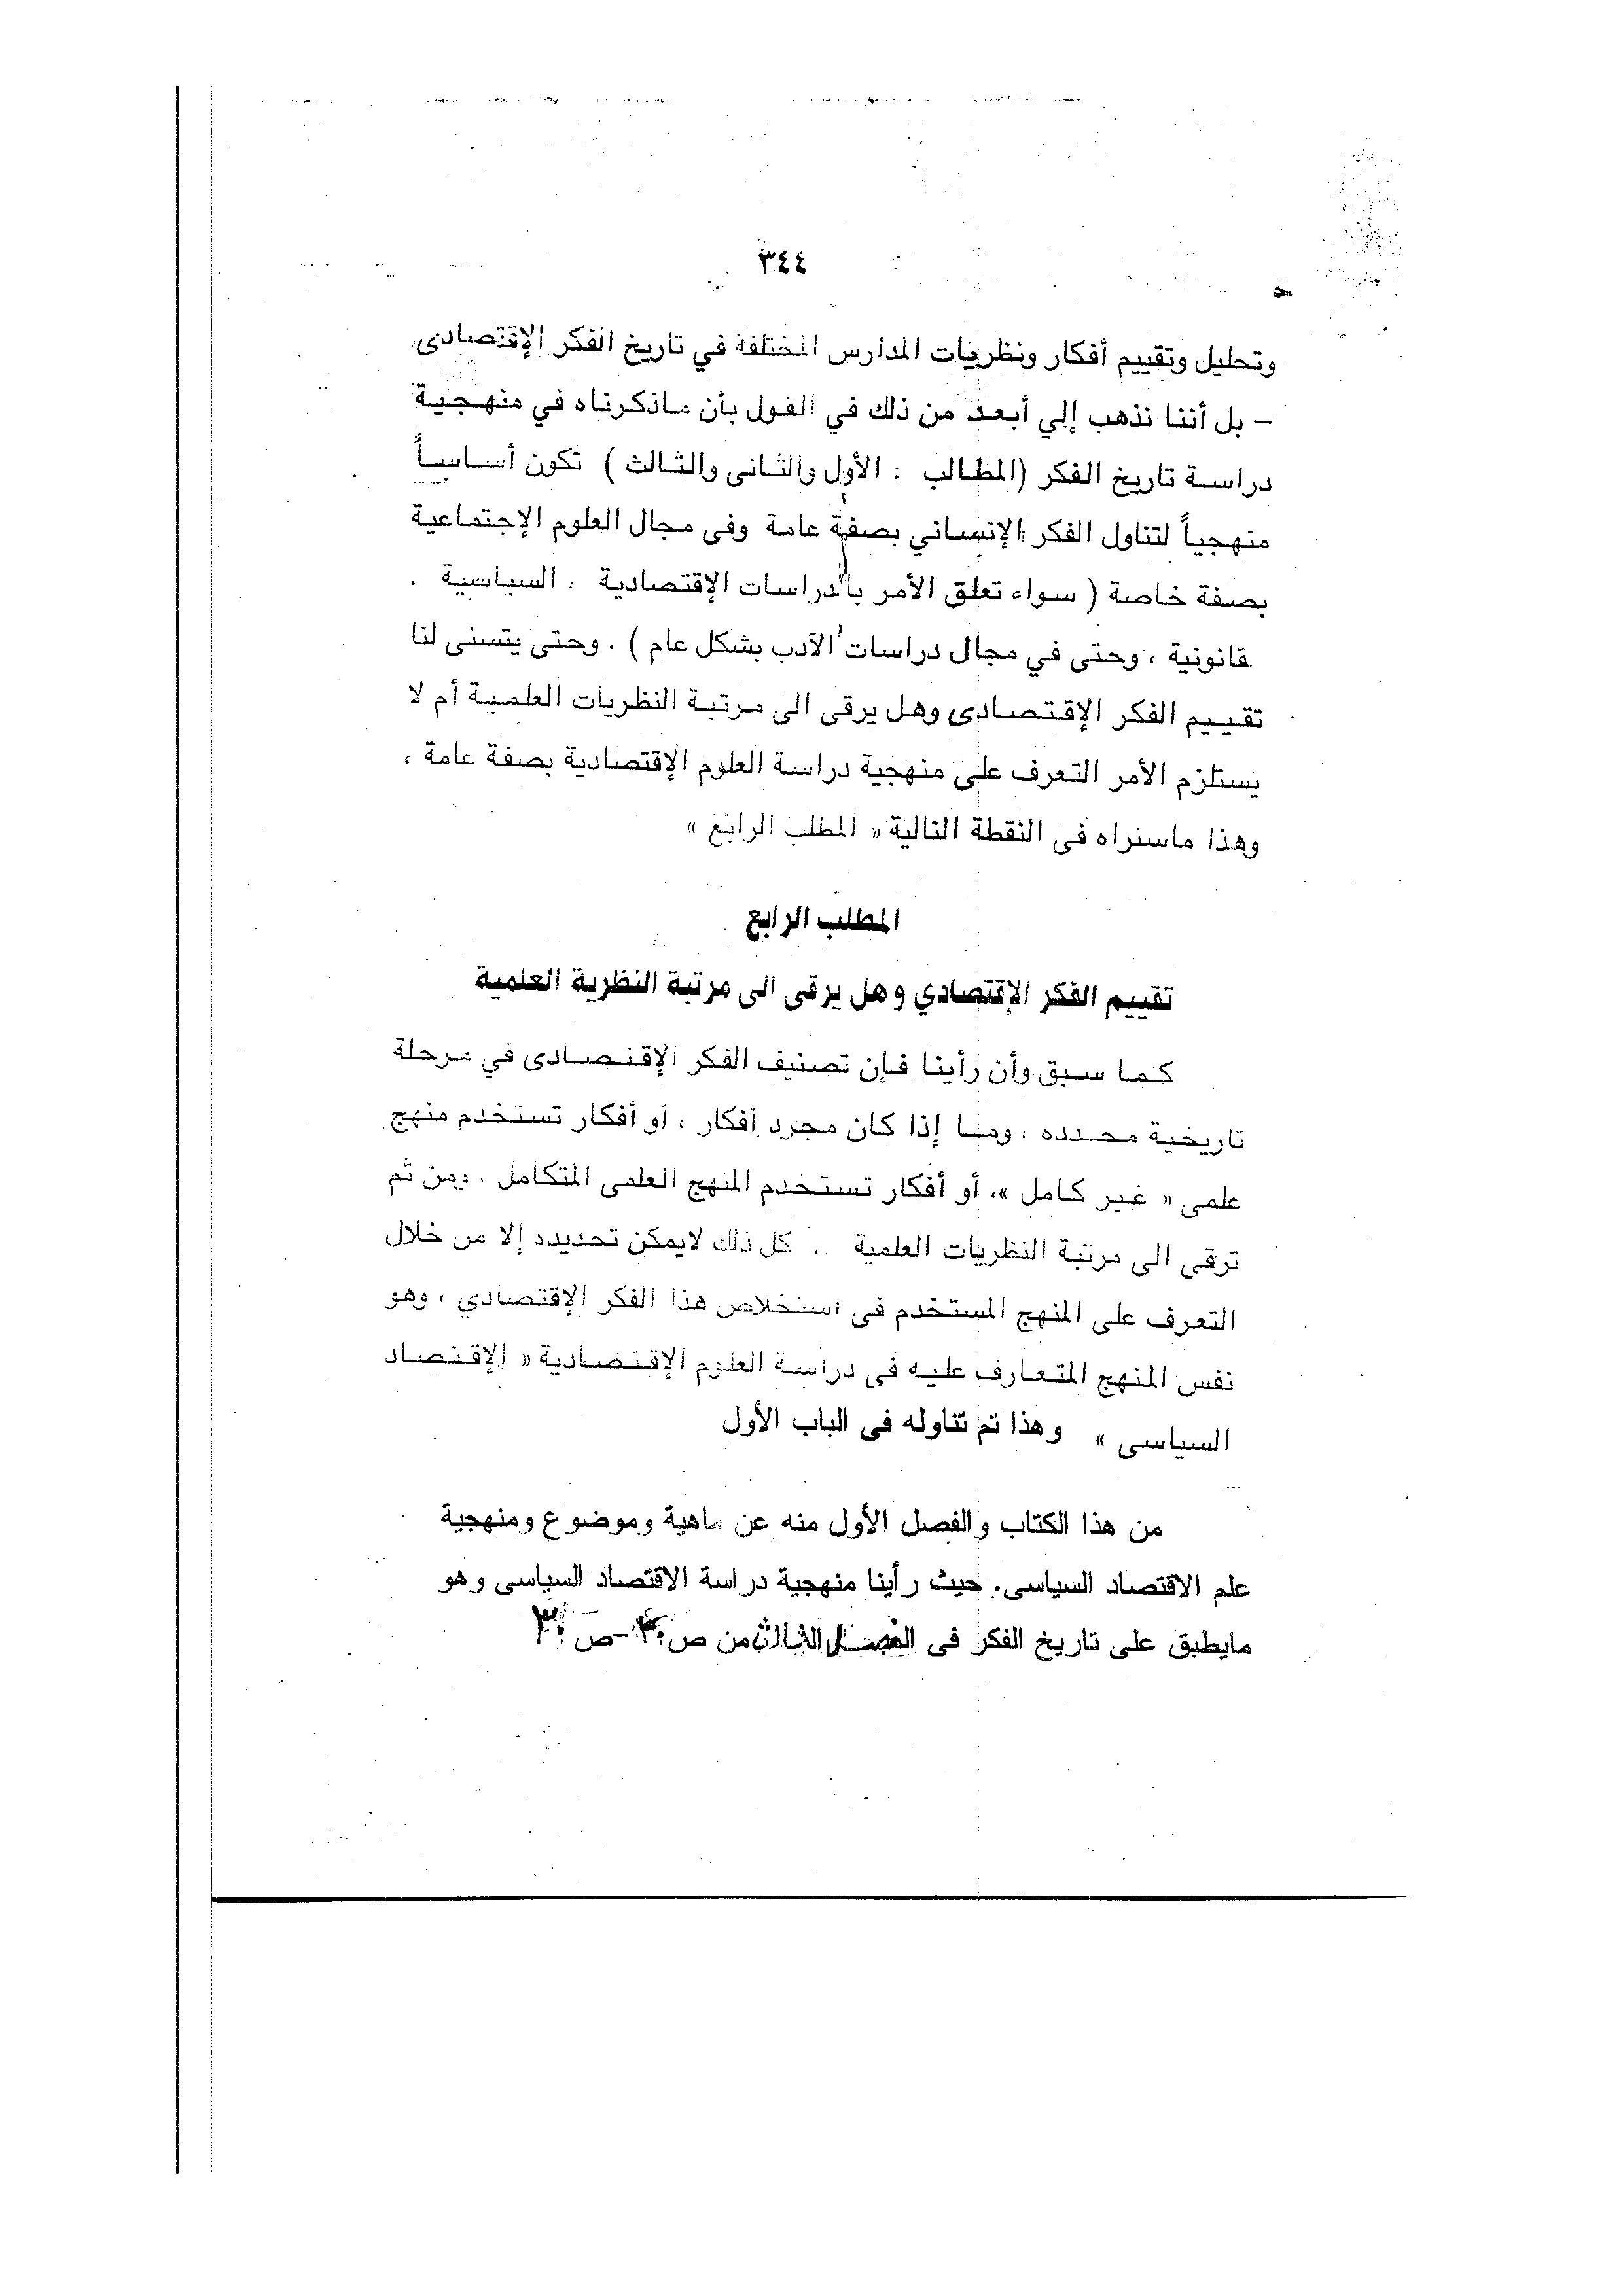 ٣٤٤
وتحليل وتقييم أفكار ونظريات المدارس المختلفة في تاريخ الفكر الإقتصادى
– بل أننا نذهب إلي أبعد من ذلك في القول بأن ماذكرناه في منهجية
دراسة تاريخ الفكر (المطالب : الأول والثانى والثالث ) تكون أساساً
منهجياً لتناول الفكر الإنساني بصفة عامة وفى مجال العلوم الإجتماعية
بصفة خاصة ( سواء تعلق الأمر بالدراسات الإقتصادية ، السياسية .
قانونية ، وحتى في مجال دراسات الأدب بشكل عام ) . وحتى يتسنى لنا
تقييم الفكر الإقتصادى وهل يرقى الى مرتبة النظريات العلمية أم لا
يستلزم الأمر التعرف على منهجية دراسة العلوم الإقتصادية بصفة عامة ،
وهذا ماسنراه فى النقطة التالية « المطلب الرابع »
المطلب الرابع
تقييم الفكر الإقتصادي وهل يرقى الى مرتبة النظرية العلمية
كما سبق وأن رأينا فإن تصنيف الفكر الإقتصادى في مرحلة
تاريخية محدده ، وما إذا كان مجرد أفكار ، أو أفكار تستخدم منهج
علمى « غير كامل »، أو أفكار تستخدم المنهج العلمى المتكامل . ومن ثم
ترقى الى مرتبة النظريات العلمية .. كل ذلك لايمكن تحديده إلا من خلال
التعرف على المنهج المستخدم فى استخلاص هذا الفكر الإقتصادي ، وهو
نفس المنهج المتعارف عليه فى دراسة العلوم الإقتصادية « الإقتصاد
السياسى » وهذا تم تناوله فى الباب الأول
من هذا الكتاب والفصل الأول منه عن ماهية وموضوع ومنهجية
علم الاقتصاد السياسى. حيث رأينا منهجية دراسة الاقتصاد السياسى وهو
مايطبق على تاريخ الفكر فى الفصل الثالث من ص – ص